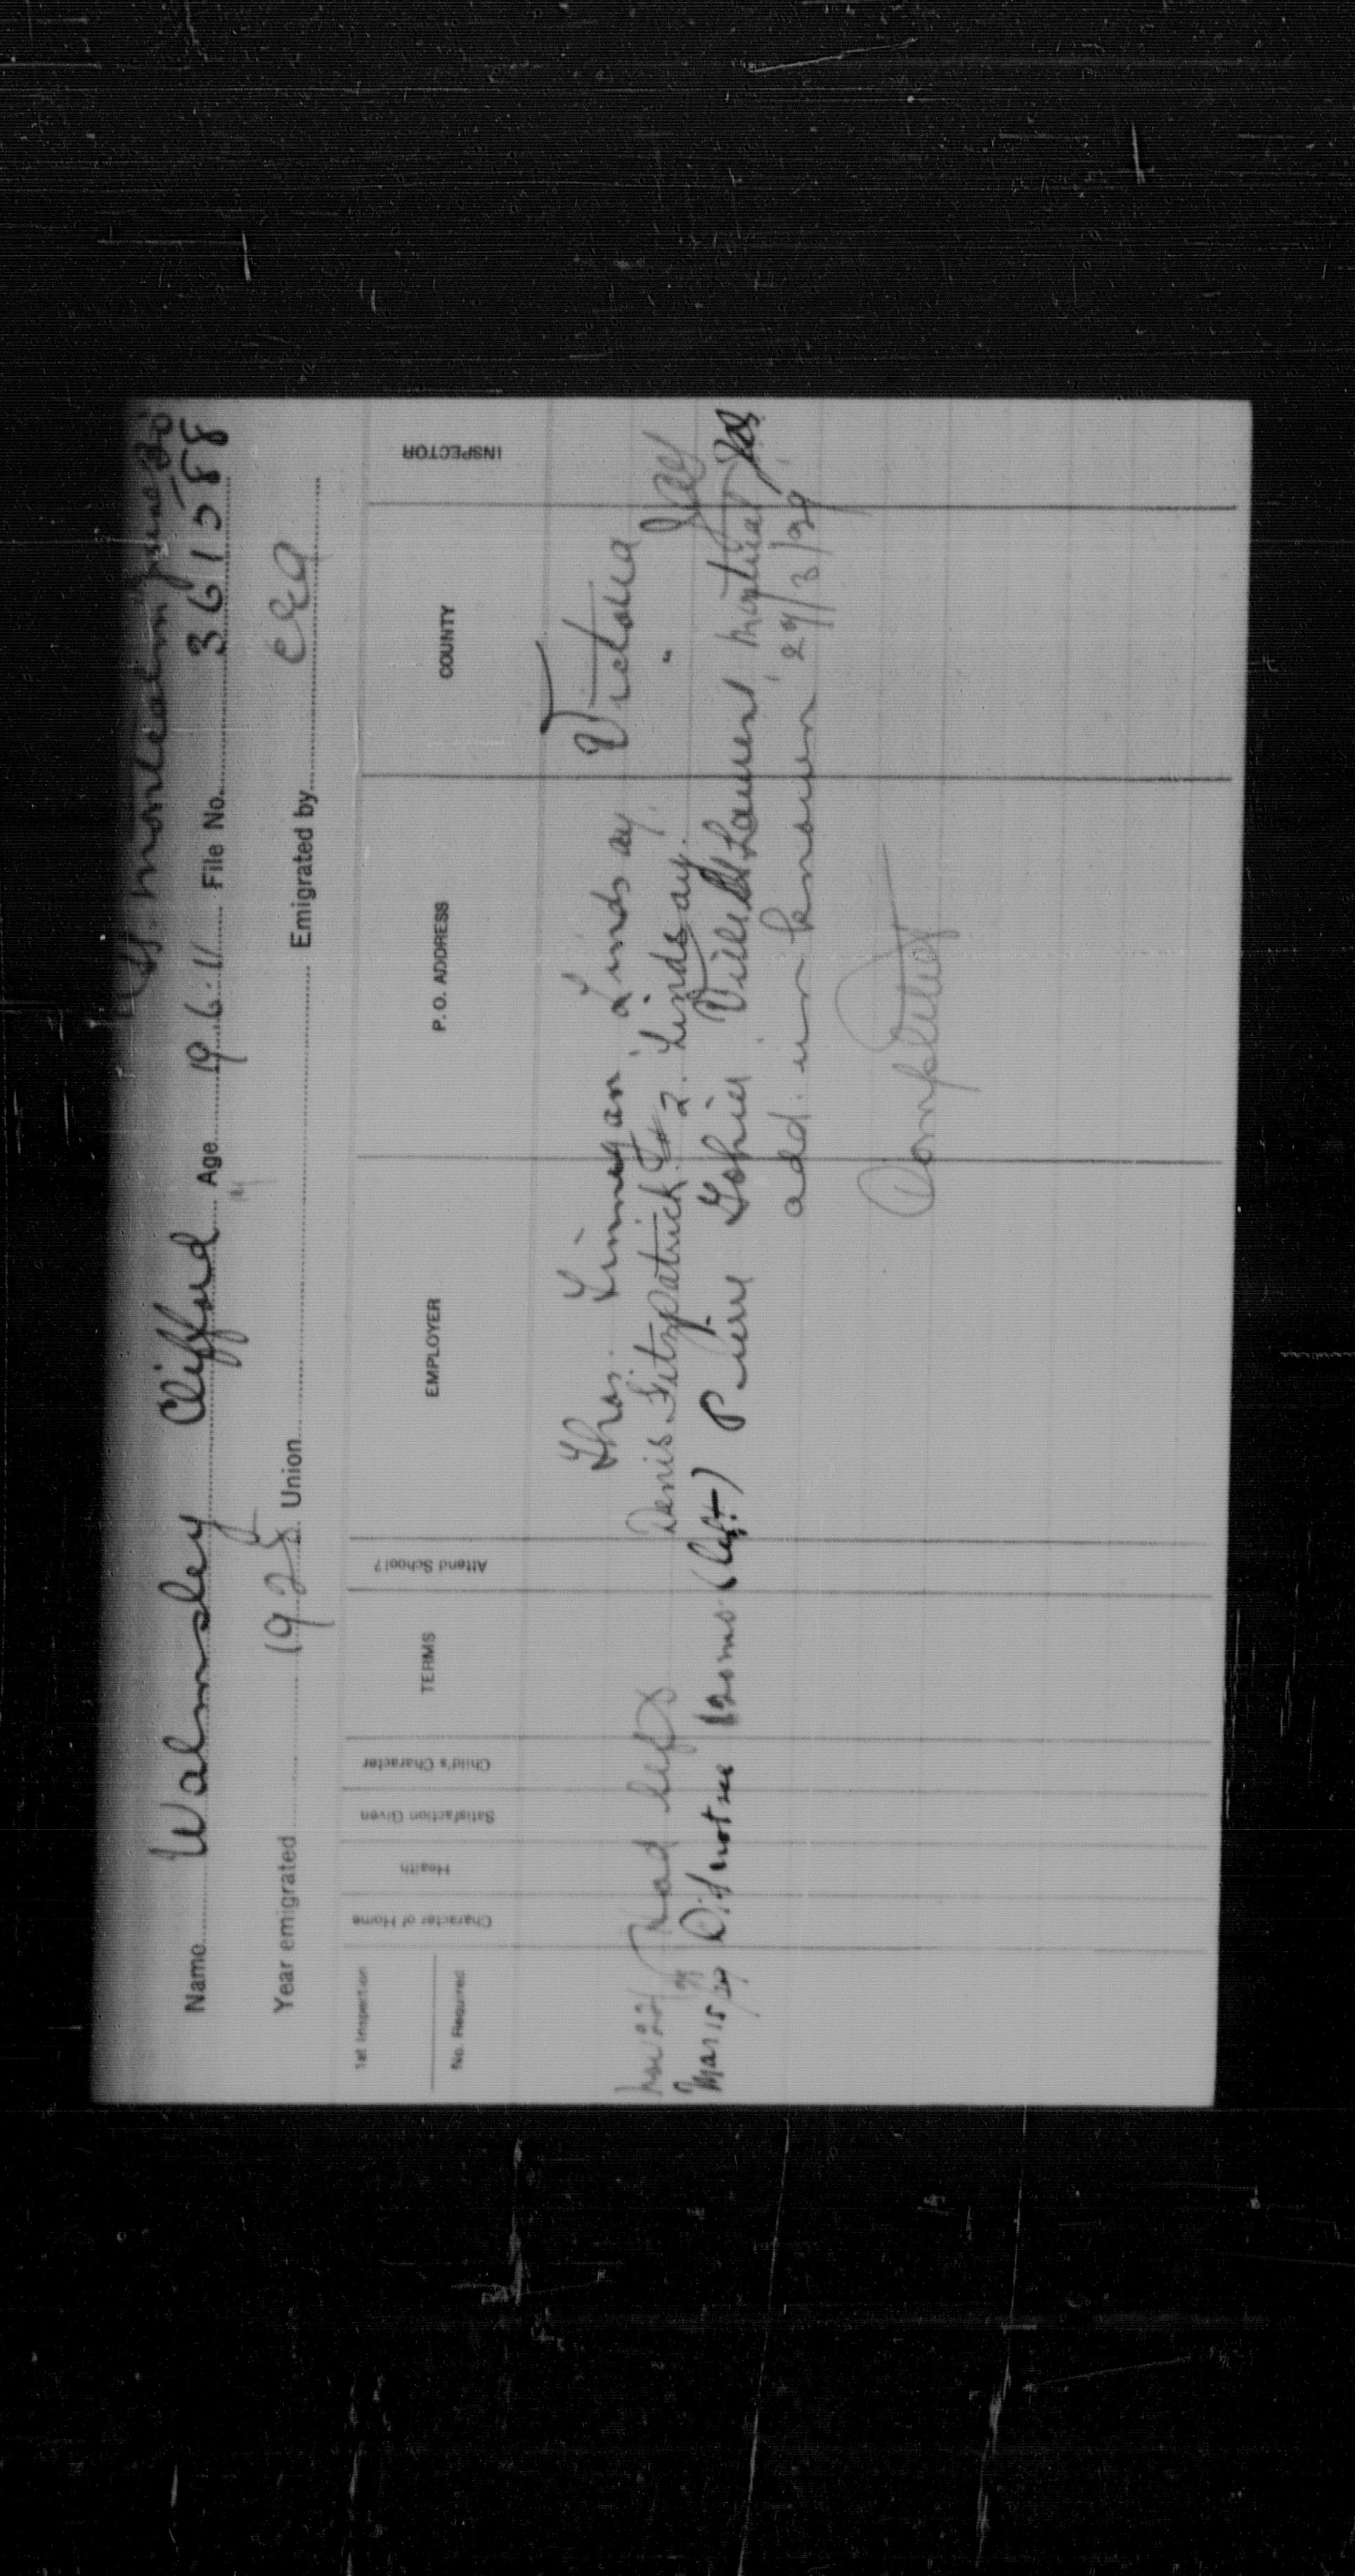 S.S. Montcalm June 30
Name Walmsley Clifford Age 19 6.11 File No. 361588
Year emigrated 1928 Union Emigrated by CEA
1st Inspection No. Required Character of Home Health Satisfaction Given Child's Character TERMS Attend School? EMPLOYER P. O. ADDRESS COUNTY INSPECTOR
Thos. Linnegan, Lindsay, Victoria
Nov 22/ Had left Denis Fitzpatrick 2. Lindsay. "
Mar 15/29 Did not see 12 mos (left) Pierre Gohier Ville St Laurent, Montreal
add. unknown 27/3/29
Completed